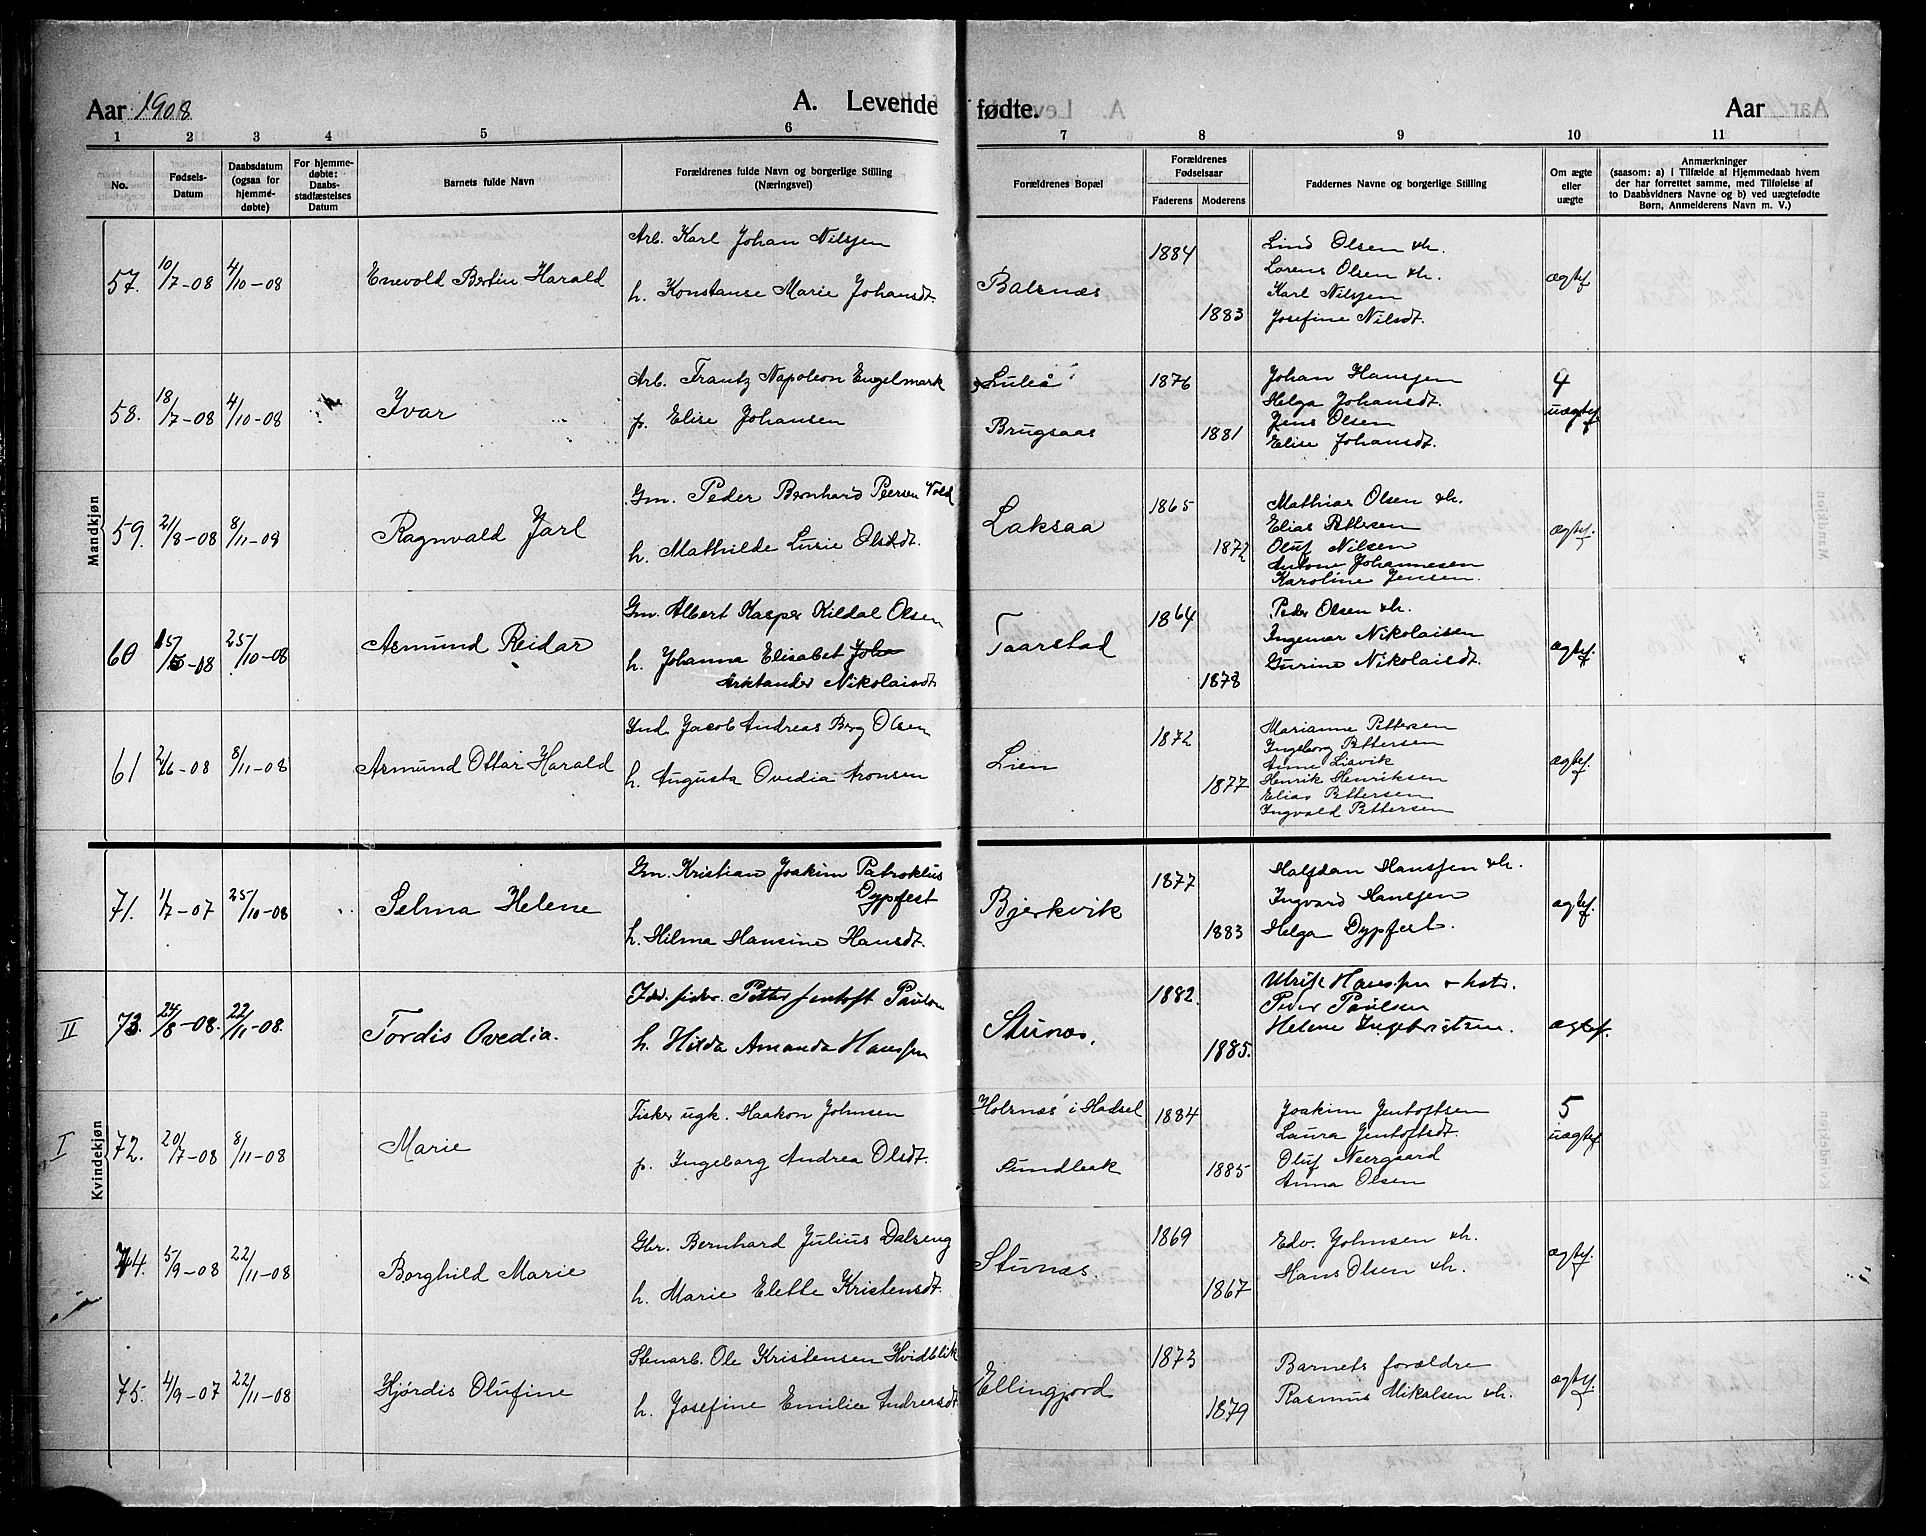 Aar 1908
A. Levende fødte.
Aar
1 2 3 4 5 6 7 8 9 10 11
No.
Fødsels-Datum
Daabsdatum (ogsaa for hjemme-døbte)
For hjemme-døbte: Daabs-stadfæstelses Datum
Barnets fulde Navn
Forældrenes fulde Navn og borgerlige Stilling (Næringsvei)
Forældrenes Bopæl
Forældrenes Fødselsaar
Faderens Moderens
Faddernes Navne og borgerlige Stilling
Om ægte eller uægte
Anmærkninger
(saasom: a) i Tilfælde af Hjemmedaab hvem
der har forrettet samme, med Tilføielse af
to Daabsvidners Navne og b) ved uægtefødte
Børn, Anmelderens Navn m. V.)
Mandkjøn
57. 10/7-08 4/10-08 Enevold Bertin Harald
Arb. Karl Johan Nilssen
h. Konstanse Marie Johansdt.
Balsnæs
1884
1883
Lind Olsen &h.
Lorens Olsen &h.
Karl Nilssen
Josefine Nilsdt.
ægtef.
58. 18/7-08 4/10-08 Ivar
Arb. Frantz Napoleon Engelmark
p. Elise Johansen
Luleå
Brugsaas
1876
1881
Johan Hanssen
Helga Johansdt.
Jens Olsen
Elise Johansdt.
4
uægtef.
59. 21/8-08 8/11-08 Ragnvald Jarl
Gm. Peder Bernhard Vold
h. Mathilde Lusie Olsdt.
Laksaa
1865
1872
Mathias Olsen &h.
Elias Pettersen
Oluf Nilsen
Antone Johannesen
Karoline Jensen.
ægtef.
60 15/5-08 25/10-08 Asmund Reidar
Gm. Albert Kasper Kildal Olsen
h. Johanna Elisabet Joha
Arktander Nikolaisdt.
Taarstad
1864
1878
Peder Olsen &h.
Ingemar Nikolaisen
Gurine Nikolaisdt.
ægtef.
61 2/6-08 8/11-08 Asmund Ottar Harald
Ind. Jacob Andreas Berg Olsen
h. Augusta Ovedia Aronsen
Lien
1872
1877
Marianne Pettersen
Ingeborg Pettersen
Anne Liavik
Henrik Henriksen
Elias Pettersen
Ingvald Pettersen
ægtef.
Kvindekjøn
71. 1/7-07 25/10-08 Selma Helene
Gm. Kristian Joakim Patroklus
Dypfest
h. Hilma Hansine Hansdt.
Bjerkvik
1877
1883
Halfdan Hanssen &h.
Ingvard Hanssen
Helga Dypfest.
ægtef.
II 73. 24/8-08. 22/11-08. Tordis Ovedia.
Petter Jentoft Paulsen
h. Hilda Amanda Hanssen
Stunæs.
1882.
1885.
Ulrik Hanssen & hst.
Peder Paulsen
Helene Ingebrigtsen.
ægtef.
I 72. 20/7-08 8/11-08 Marie
Fisker ugk. Haakon Johnsen
p. Ingeborg Andrea Olsdt.
Holsnæs i Hadsel
Sundleak
1884
1885
Joakim Jentoftsen
Laura Jentoftsdt.
Oluf Neergaard
Anna Olsen
5
uægtef.
74. 5/9-08 22/11-08 Borghild Marie
Gbr. Bernhard Julius Dalseng
h. Marie Elette Kristensdt.
Stunæs.
1869
1867
Edv. Johnsen &h.
Hans Olsen &h.
ægtef.
75. 4/9-07 22/11-08 Hjørdis Olufine
Stenarb. Ole Kristensen Hvidblik
h. Josefine Emilie Andreasdt.
Ellingjord
1873
1879
Barnets forældre
Rasmus Mikalsen &h.
ægtef.